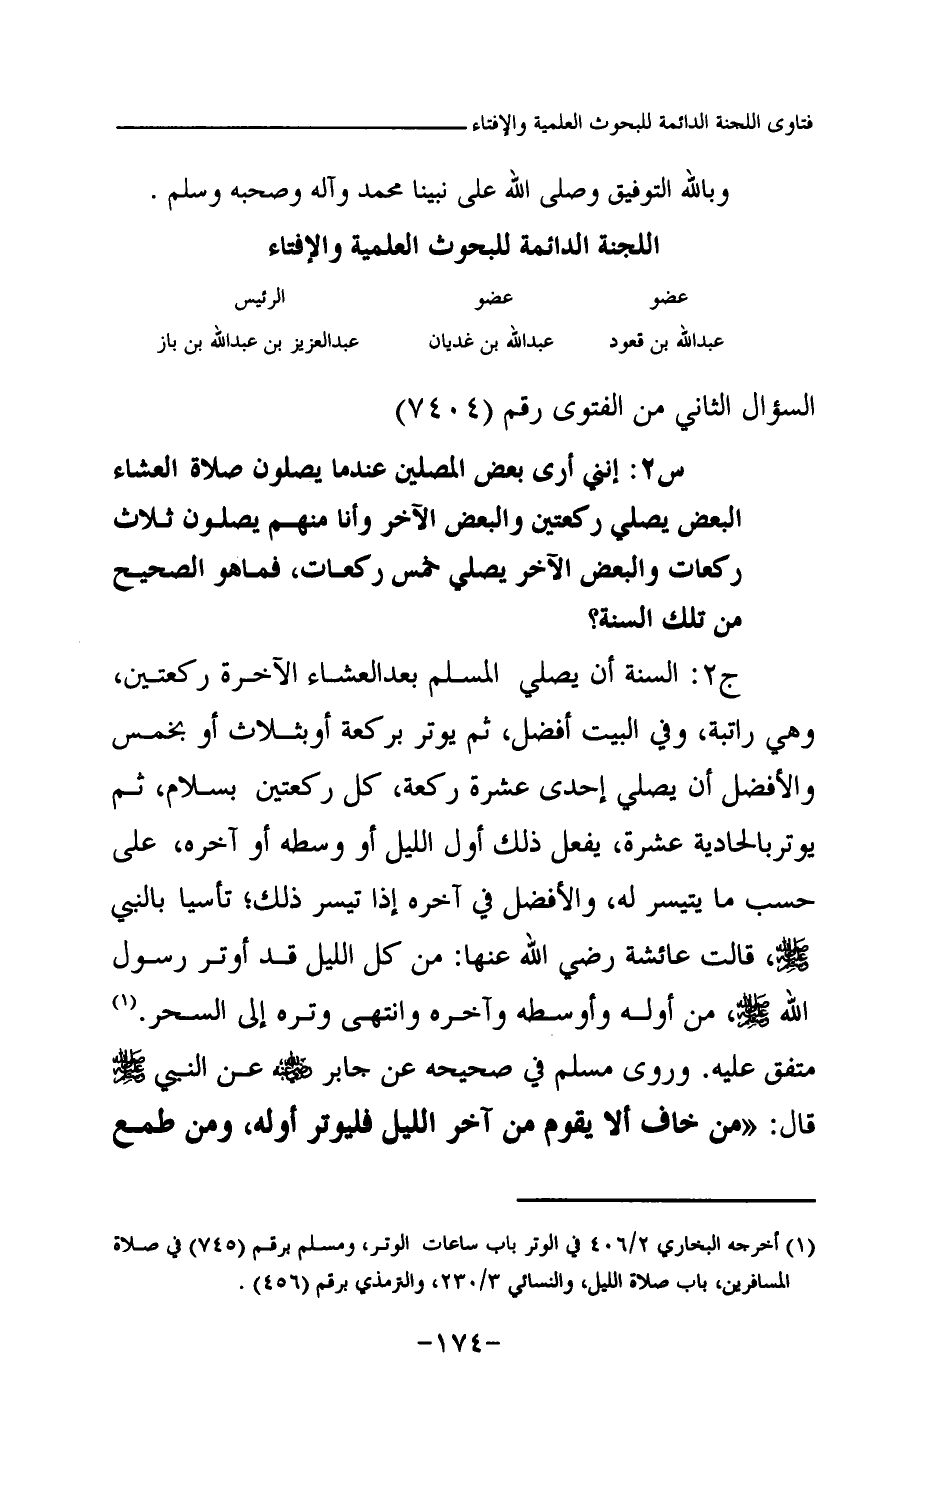 فتاوى اللجنة الدائمة للبحوث العلمية والإفتاء
وبالله التوفيق وصلى الله على نبينا محمد وآله وصحبه وسلم .
اللجنة الدائمة للبحوث العلمية والإفتاء
عضو عضو الرئيس
عبدالله بن قعود عبدالله بن غديان عبدالعزيز بن عبدالله بن باز
السؤال الثاني من الفتوى رقم (٧٤٠٤)
س٢: إنني أرى بعض المصلين عندما يصلون صلاة العشاء
البعض يصلي ركعتين والبعض الآخر وأنا منهم يصلون ثلاث
ركعات والبعض الآخر يصلي خمس ركعات، فماهو الصحيح
من تلك السنة؟
ج٢: السنة أن يصلي المسلم بعدالعشاء الآخرة ركعتين،
وهي راتبة، وفي البيت أفضل، ثم يوتر بركعة أوبثلاث أو بخمس
والأفضل أن يصلي إحدى عشرة ركعة، كل ركعتين بسلام، ثم
يوتربالحادية عشرة، يفعل ذلك أول الليل أو وسطه أو آخره، على
حسب ما يتيسر له، والأفضل في آخره إذا تيسر ذلك؛ تأسيا بالنبي
ﷺ، قالت عائشة رضي الله عنها: من كل الليل قد أوتر رسول
الله ﷺ، من أوله وأوسطه وآخره وانتهى وتره إلى السحر.(١)
متفق عليه. وروى مسلم في صحيحه عن جابر رضي الله عنه عن النبي ﷺ
قال: «من خاف ألا يقوم من آخر الليل فليوتر أوله، ومن طمع
(١) أخرجه البخاري ٤٠٦/٢ في الوتر باب ساعات الوتر، ومسلم برقم (٧٤٥) في صلاة
المسافرين، باب صلاة الليل، والنسائي ٢٣٠/٣، والترمذي برقم (٤٥٦) .
-١٧٤-